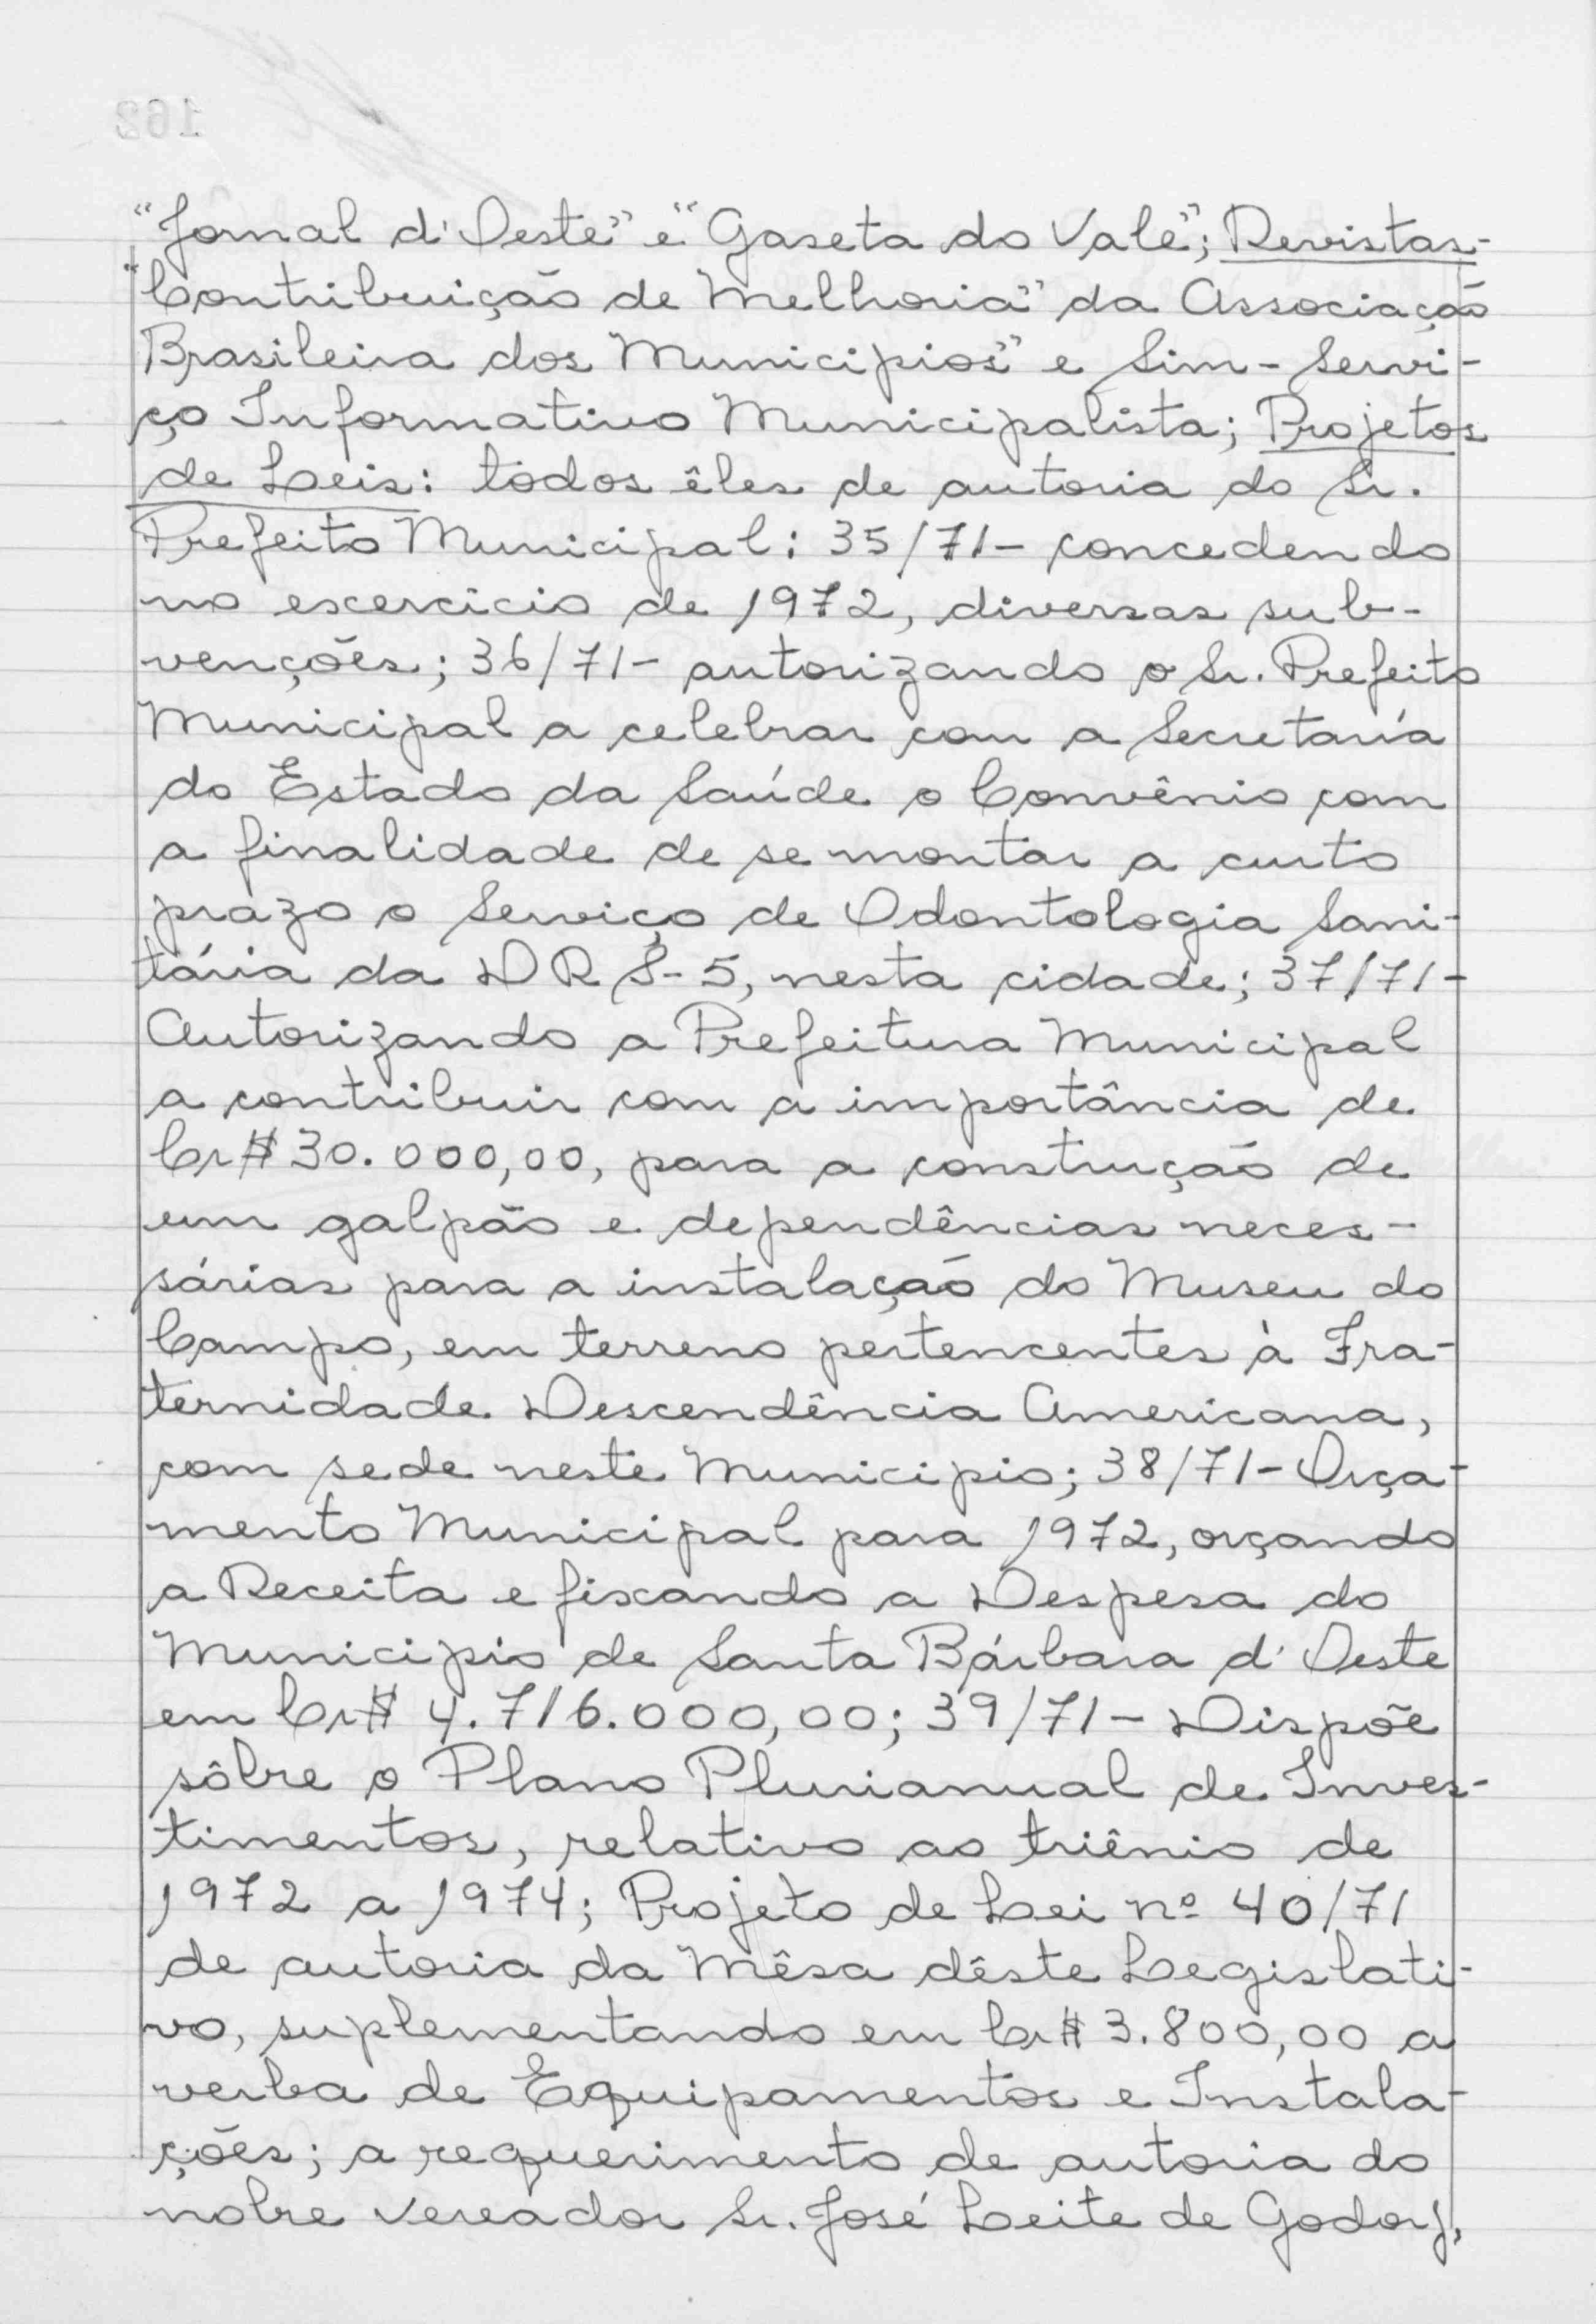 "Jornal d'Oeste" e "Gaseta do Vale"; Revistas-
"Contribuição de Melhoria" da Associação
Brasileira dos Municipios" e Sim - Servi-
ço Informativo Municipalista; Projetos
de Leis: todos êles de autoria do Sr.
Prefeito Municipal: 35/71- concedendo
no escercicio de 1972, diversas sub-
venções; 36/71- autorizando o Sr. Prefeito
Municipal a celebrar com a Secretaría
do Estado da Saúde o Convênio com
a finalidade de se montar a curto
prazo o Serviço de Odontologia Sani-
tária da DRS-5, nesta cidade; 37/71-
Autorizando a Prefeitura Municipal
a contribuir com a importância de
Cr$ 30.000,00, para a construção de
um galpão e dependências neces-
sárias para a instalação do Museu do
Campo, em terreno pertencentes à Fra-
ternidade Descendência Americana,
com sede neste Municipio; 38/71- Orça-
mento Municipal para 1972, orçando
a Receita e fixando a Despesa do
Municipio de Santa Bárbara d'Oeste
em Cr$ 4.716.000,00; 39/71- Dispõe
sôbre o Plano Plurianual de Inves-
timentos, relativo ao triênio de
1972 a 1974; Projeto de Lei nº 40/71
de autoria da Mêsa dêste Legislati-
vo, suplementando em Cr$ 3.800,00 a
verba de Equipamentos e Instala-
ções; a requerimento de autoria do
nobre vereador Sr. José Leite de Godoy,
162